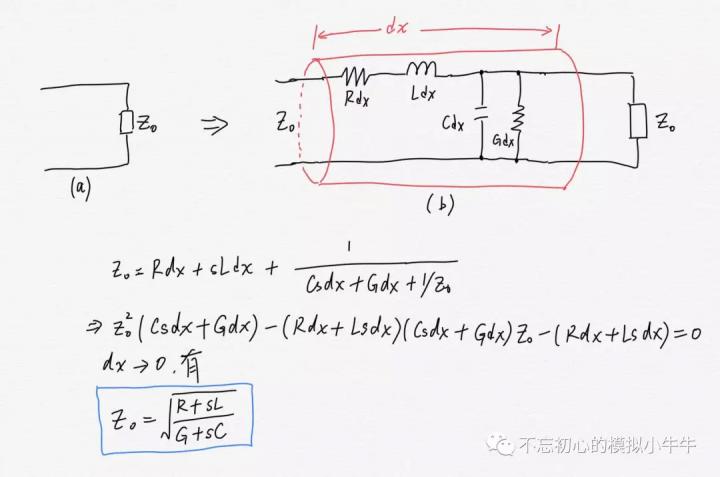 dx
Z₀
⇒
Z₀
Rdx
Ldx
Cdx
Gdx
Z₀
(a)
(b)
Z₀ = Rdx + sLdx + 1/(Csdx + Gdx + 1/Z₀)
⇒ Z₀²(Csdx + Gdx) − (Rdx + Lsdx)(Csdx + Gdx)Z₀ − (Rdx + Lsdx) = 0
dx → 0. 有
Z₀ = √((R + sL)/(G + sC))
不忘初心的模拟小牛牛